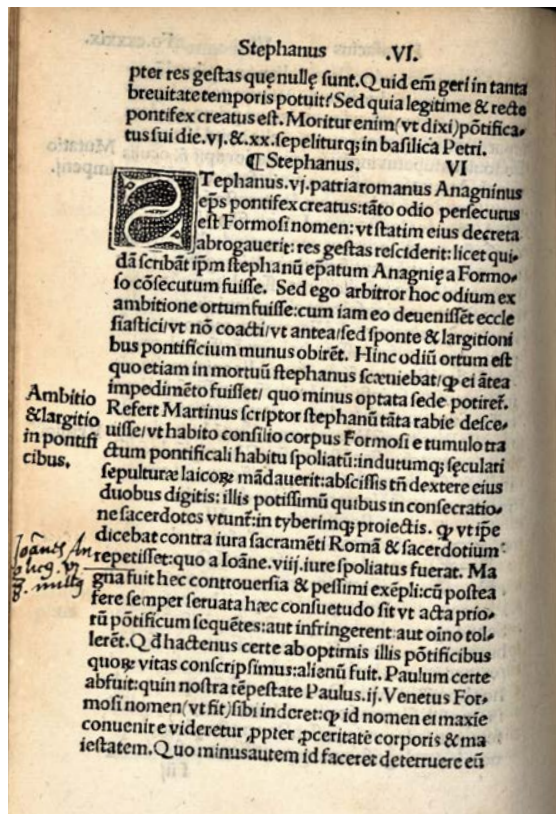 Stephanus .VI.
pter res gestas quę nullę sunt. Quid em̄ geri in tanta
breuitate temporis potuit? Sed quia legitime & recte
pontifex creatus est. Moritur enim (vt dixi) põtifica-
tus sui die. vj. & .xx. sepeliturqꝫ in basilica Petri.
¶ Stephanus. VI
STephanus. vj. patria romanus Anagninus
ep̄s pontifex creatus: tãto odio persecutus
est Formosi nomen: vt statim eius decreta
abrogauerit: res gestas resciderit: licet qui-
dã scribãt ip̄m stephanũ ep̄atum Anagnię a Formo-
so cõsecutum fuisse. Sed ego arbitror hoc odium ex
ambitione ortum fuisse: cum iam eo deuenissẽt eccle
siastici/ vt nõ coacti/ vt antea/ sed sponte & largitioni
bus pontificium munus obirẽt. Hinc odiũ ortum est
quo etiam in mortuũ stephanus scæuiebat/ ꝙ ei ãtea
impedimẽto fuisset/ quo minus optata sede potireť.
Refert Martinus scriptor stephanũ tãta rabie desce-
uisse/ vt habito consilio corpus Formosi e tumulo tra
ctum pontificali habitu spoliatũ: indutumqꝫ sęculari
sepulturæ laicoꝝ mãdauerit: abscissis tñ dextere eius
duobus digitis: illis potissimũ quibus in consecratio-
ne sacerdotes vtunť: in tyberimqꝫ proiectis. ꝙ vt ip̄e
dicebat contra iura sacramẽti Romã & sacerdotium
repetisset: quo a Ioãne. viij. iure spoliatus fuerat. Ma
gna fuit hec controuersia & pessimi exẽpli: cũ postea
fere semper seruata hæc consuetudo sit vt acta prio-
rũ põtificum sequẽtes: aut infringerent aut oĩno tol-
lerẽt. Q đ hactenus certe ab optimis illis põtificibus
quoꝝ vitas conscripsimus: alienũ fuit. Paulum certe
abfuit: quin nostra tẽpestate Paulus. ij. Venetus For-
mosi nomen (vt fit) sibi inderet: ꝙ id nomen ei maxĩe
conuenire videretur ꝓpter ꝓceritatẽ corporis & ma
iestatem. Quo minus autem id faceret deterruere eũ
Ambitio
& largitio
in pontifi
cibus.
Ioãnes